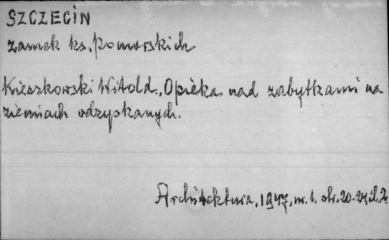 SZCZECIN
zamek ks. Pomorskich
Kieszkowski Witold. Opieka nad zabytkami na
ziemiach odzyskanych.
Architektura, 1947, nr. 1. str. 20-24, il. 2